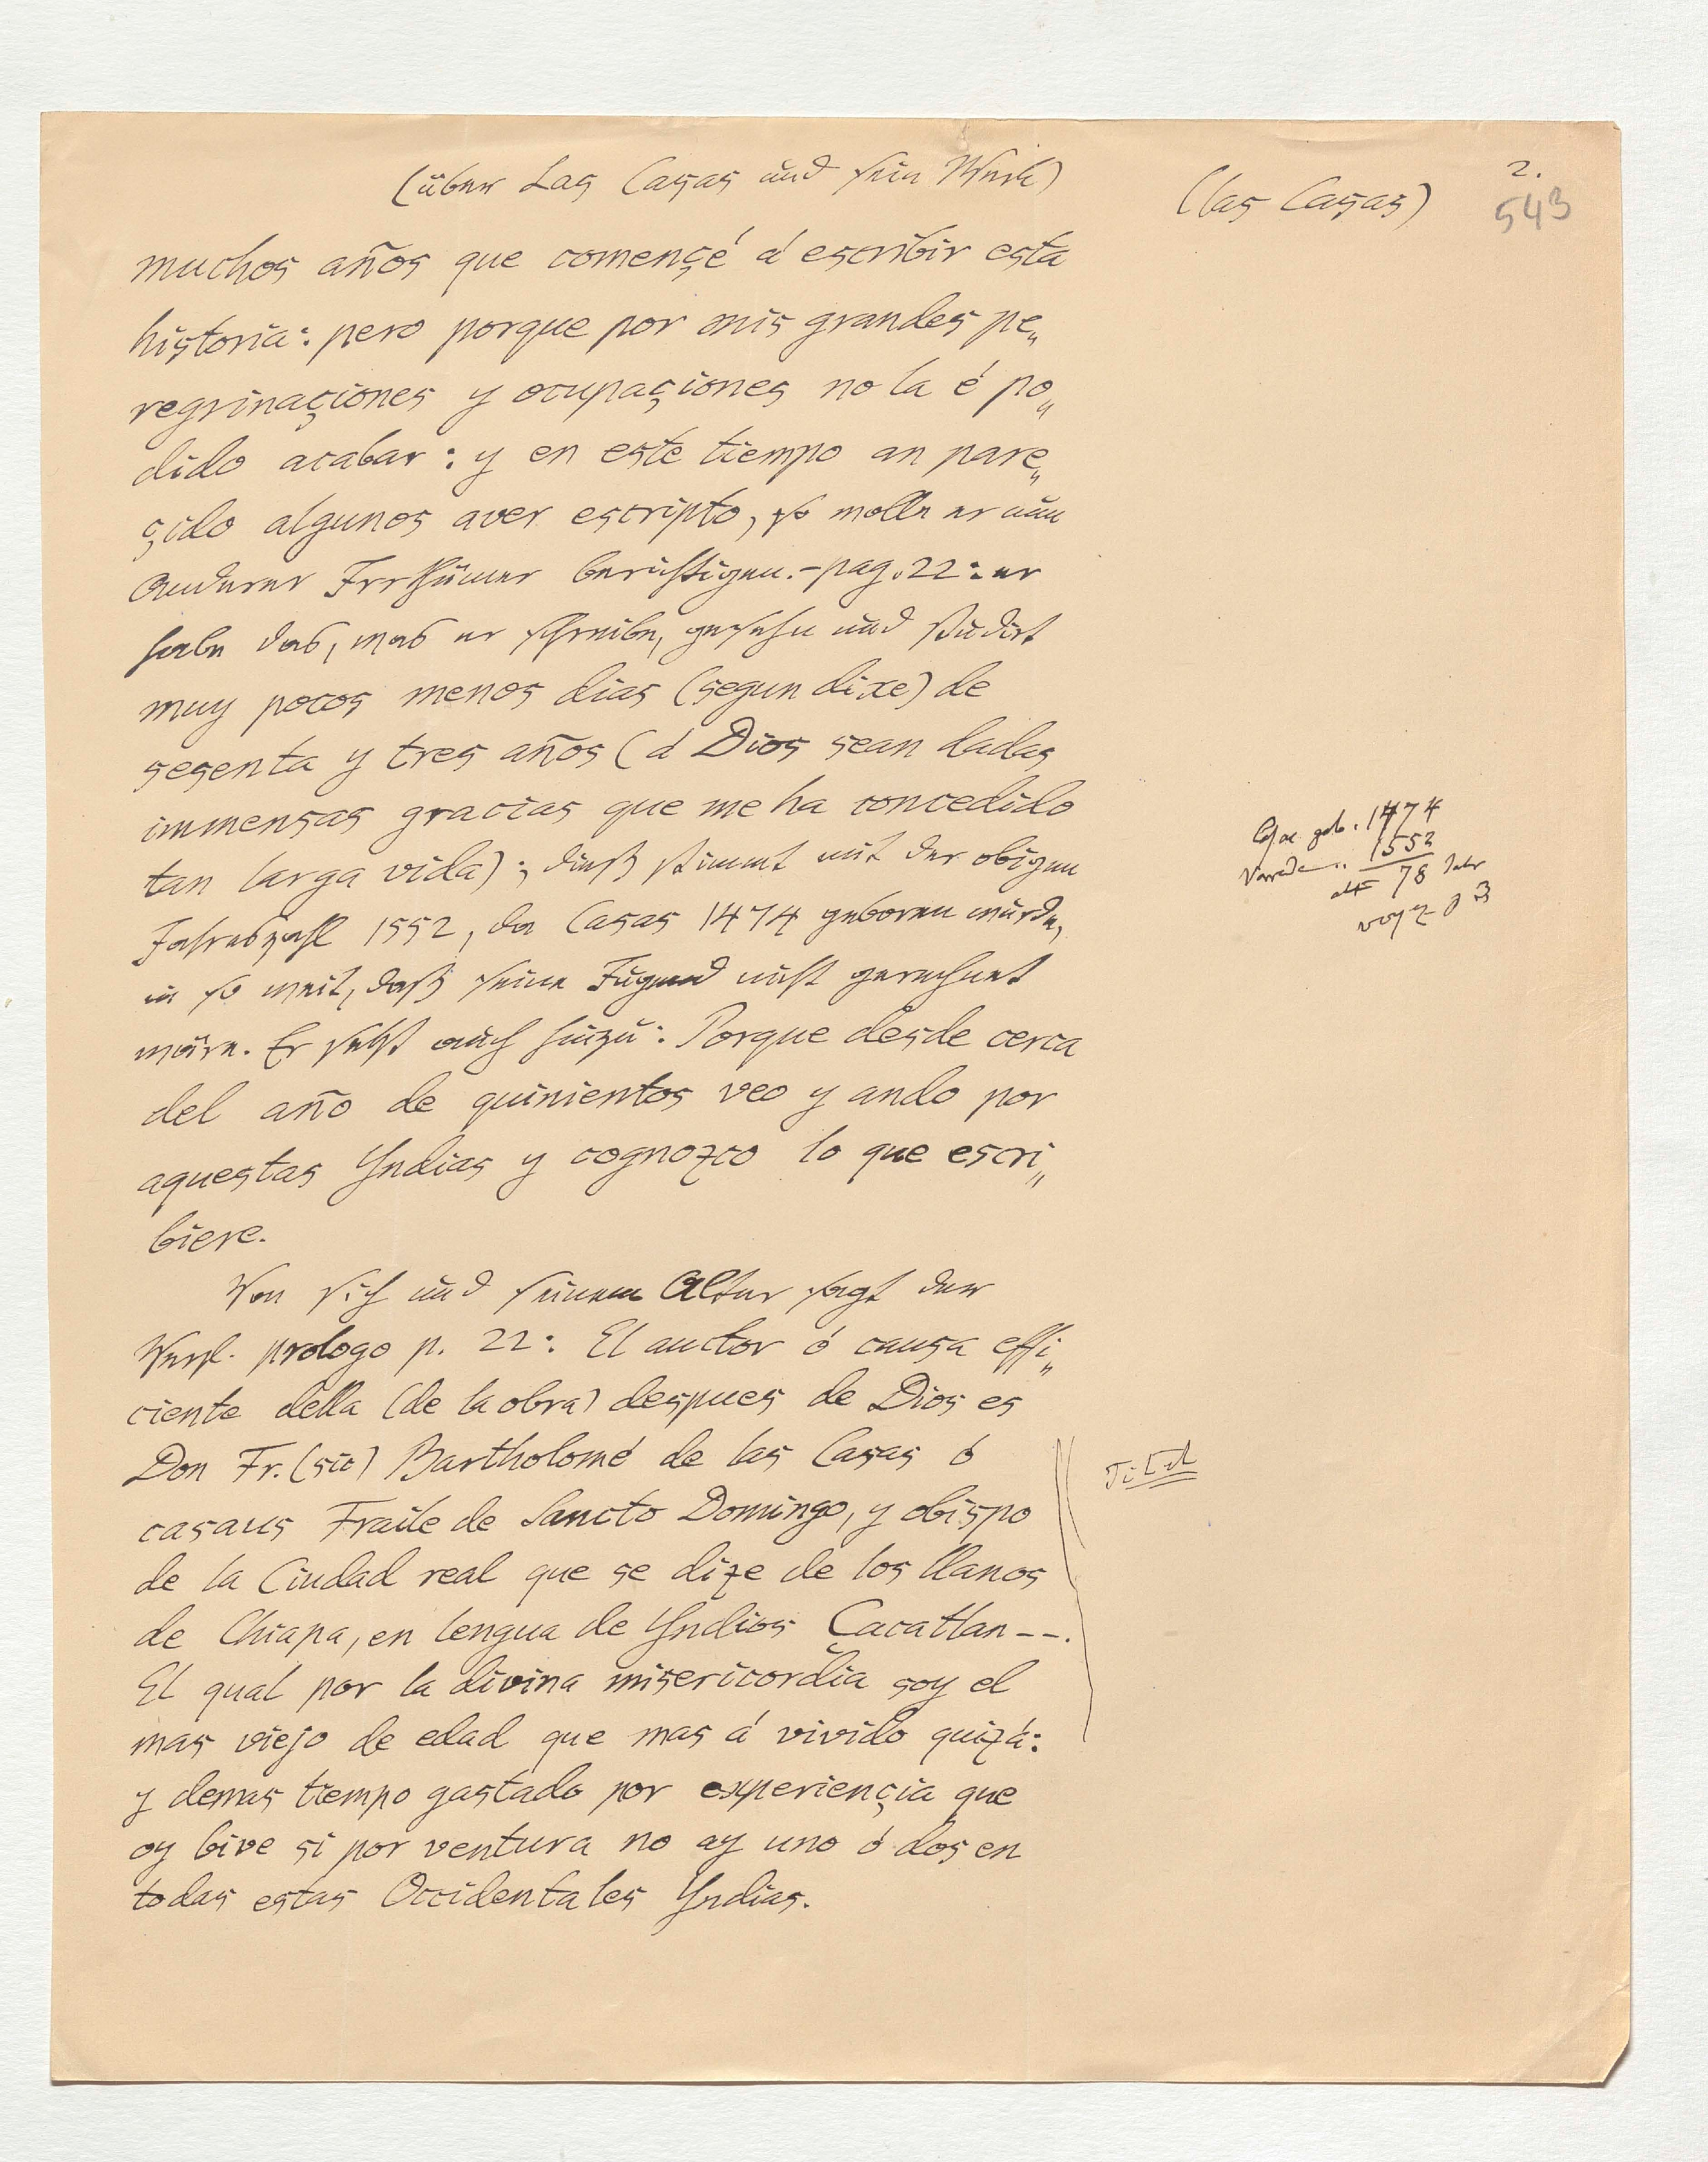 (über Las Casas und sein Werk)
(las Casas)
2.
543
muchos años que començé á escribir esta
historia: pero porque por mis grandes pe„
regrinaçiones y ocupaçiones no la é po„
dido acabar: y en este tiempo an pare„
çido algunos aver escripto, so wolle er nun
Anderer Irrthümer berichtigen. – pag. 22: er
habe das, was er schreibe, gesehn und studirt
muy pocos menos dias (segun dixe) de
sesenta y tres años (á Dios sean dadas
immensas gracias que me ha concedido
tan larga vida); dieß stimmt mit der obigen
Jahreszahl 1552, da Casas 1474 geboren wurde,
in so weit, daß seine Jugend nicht gerechnet
wäre. Er setzt auch hinzu: Porque desde cerca
del año de quinientos veo y ando por
aquestas Yndias y cognozco lo que escri„
biere.
Von sich und seinem Alter sagt der
Verf. prologo p. 22: El auctor ó causa effi„
ciente della (de la obra) despues de Dios es
Don Fr. (sic) Bartholomé de las Casas ó
casaus Fraile de Sancto Domingo, y obispo
de la Ciudad real que se dize de los llanos
de Chiapa, en lengua de Yndios Çacatlan --.
El qual por la divina misericordia soy el
mas viejo de edad que mas á vivido quizá:
y demas tiempo gastado por experiençia que
oy bive si por ventura no ay uno ó dos en
todas estas Occidentales Yndias.
geb. 1474
Vorrede 1552
alt 78 Jahr
Titel